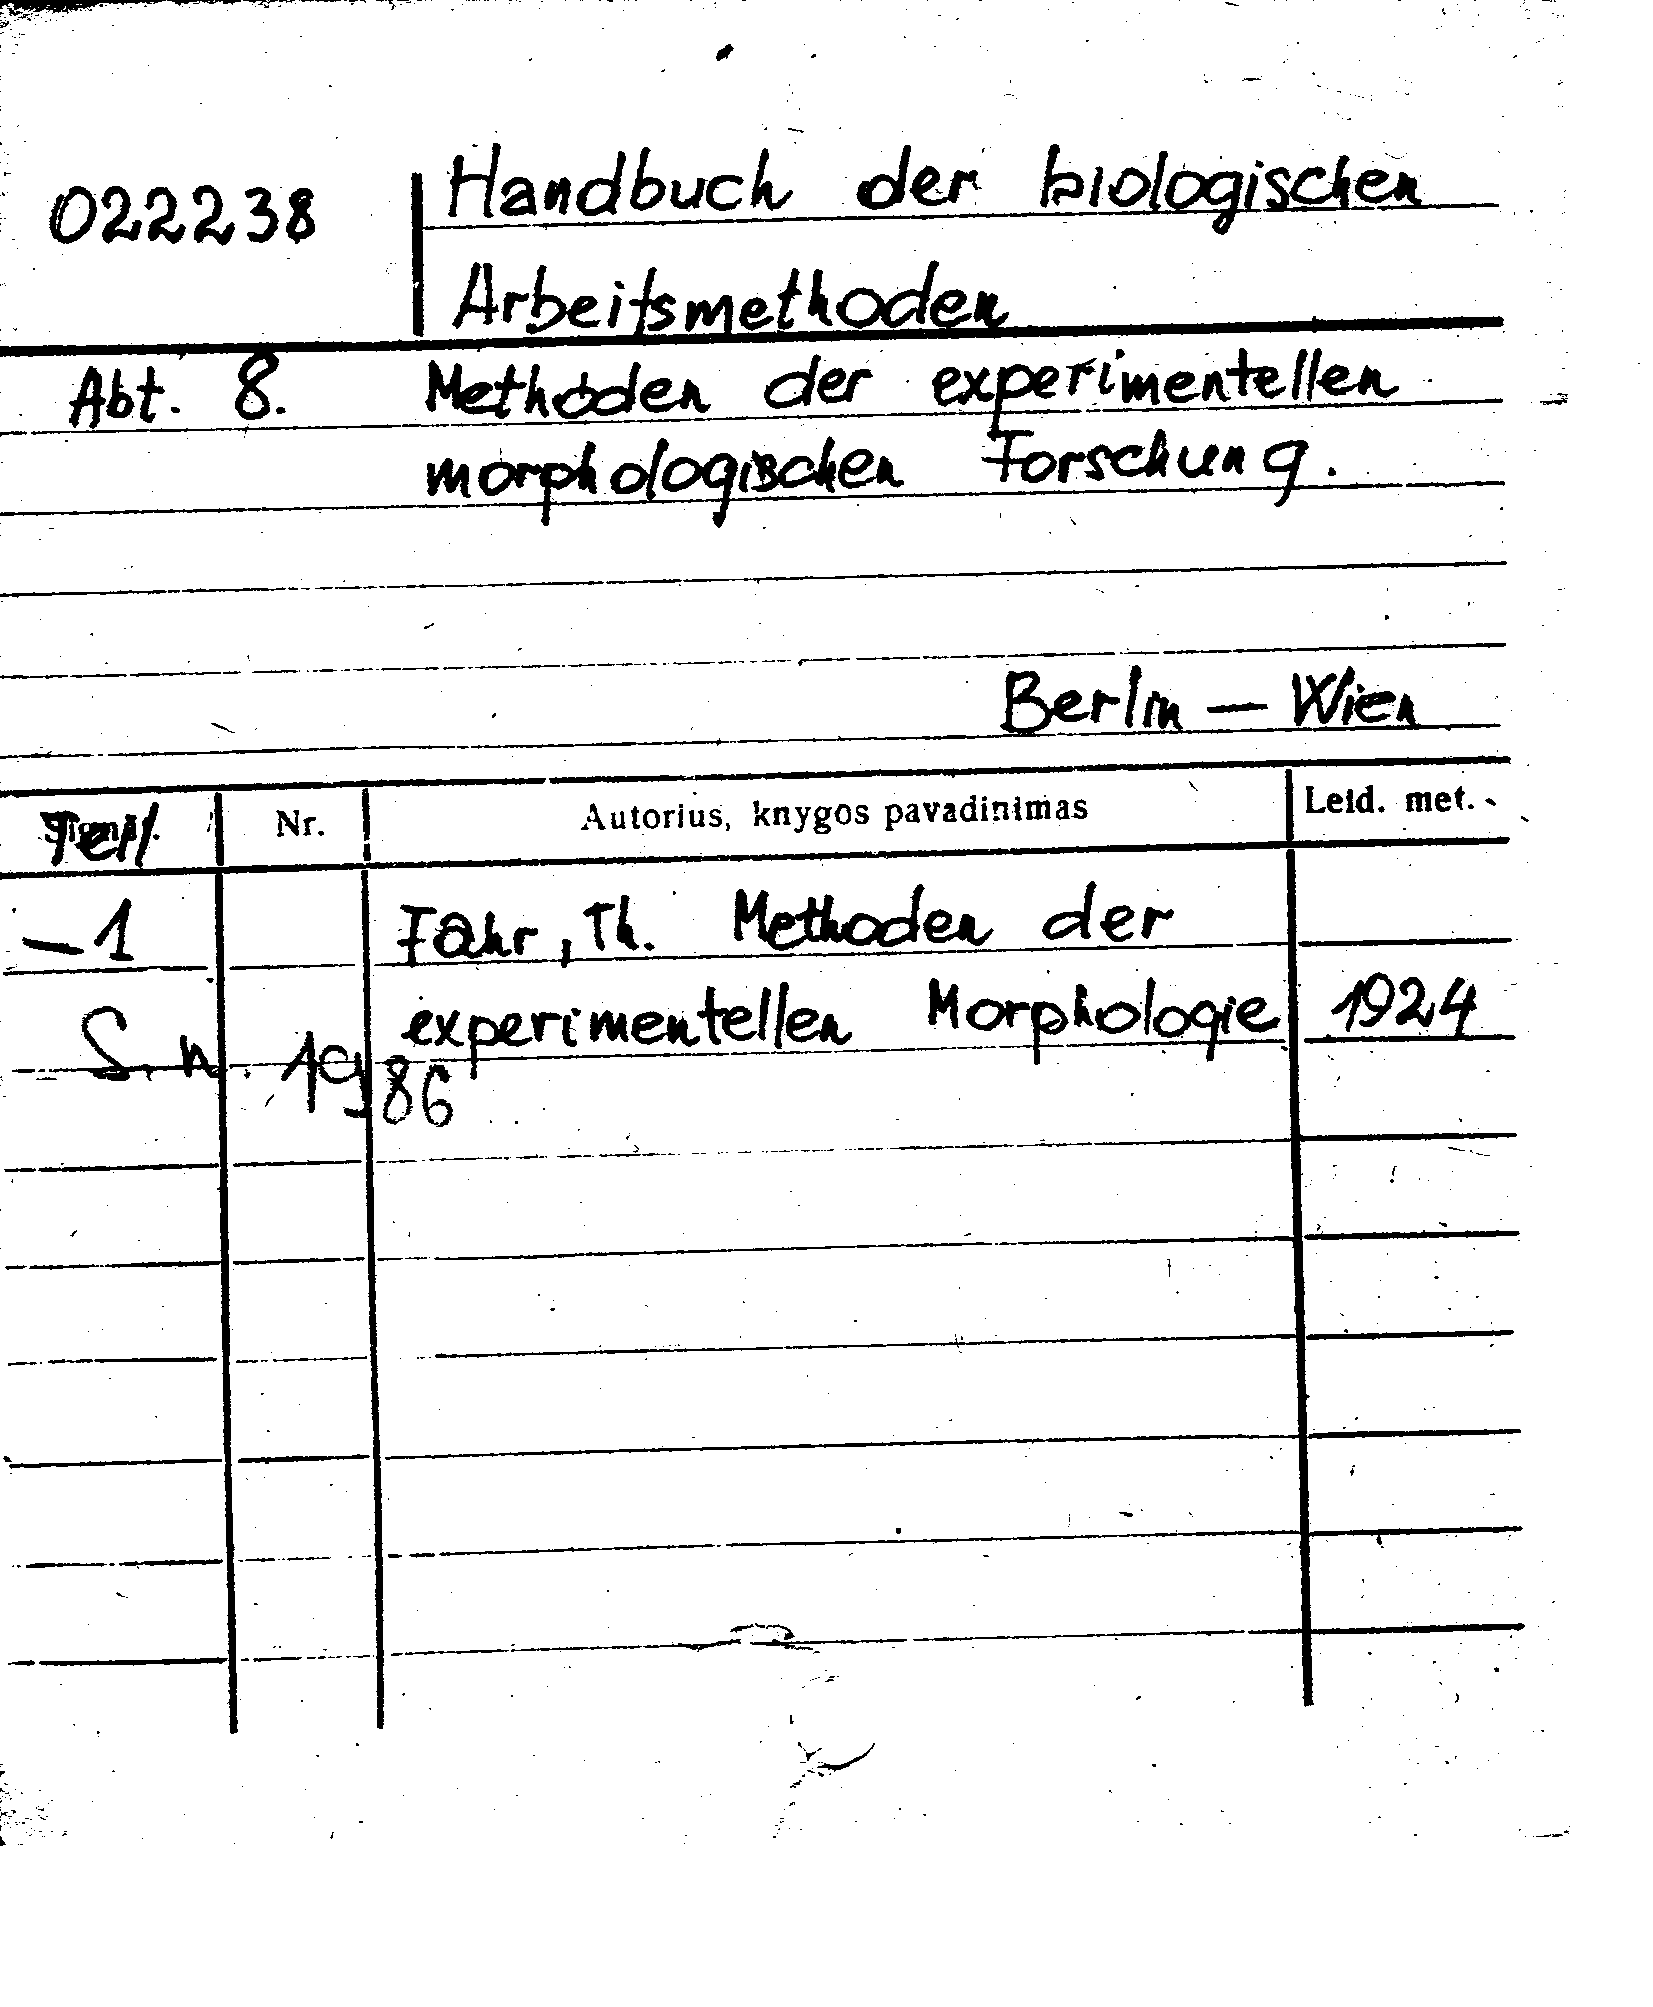 022238 Handbuch der biologischen
Arbeitsmethoden
Abt. 8. Methoden der experimentellen
morphologischen Forschung.
Berlin — Wien
Teil Nr. Autorius, knygos pavadinimas Leid. met.
—1 Fahr, Th. Methoden der
experimentellen Morphologie 1924
S. n. 1986